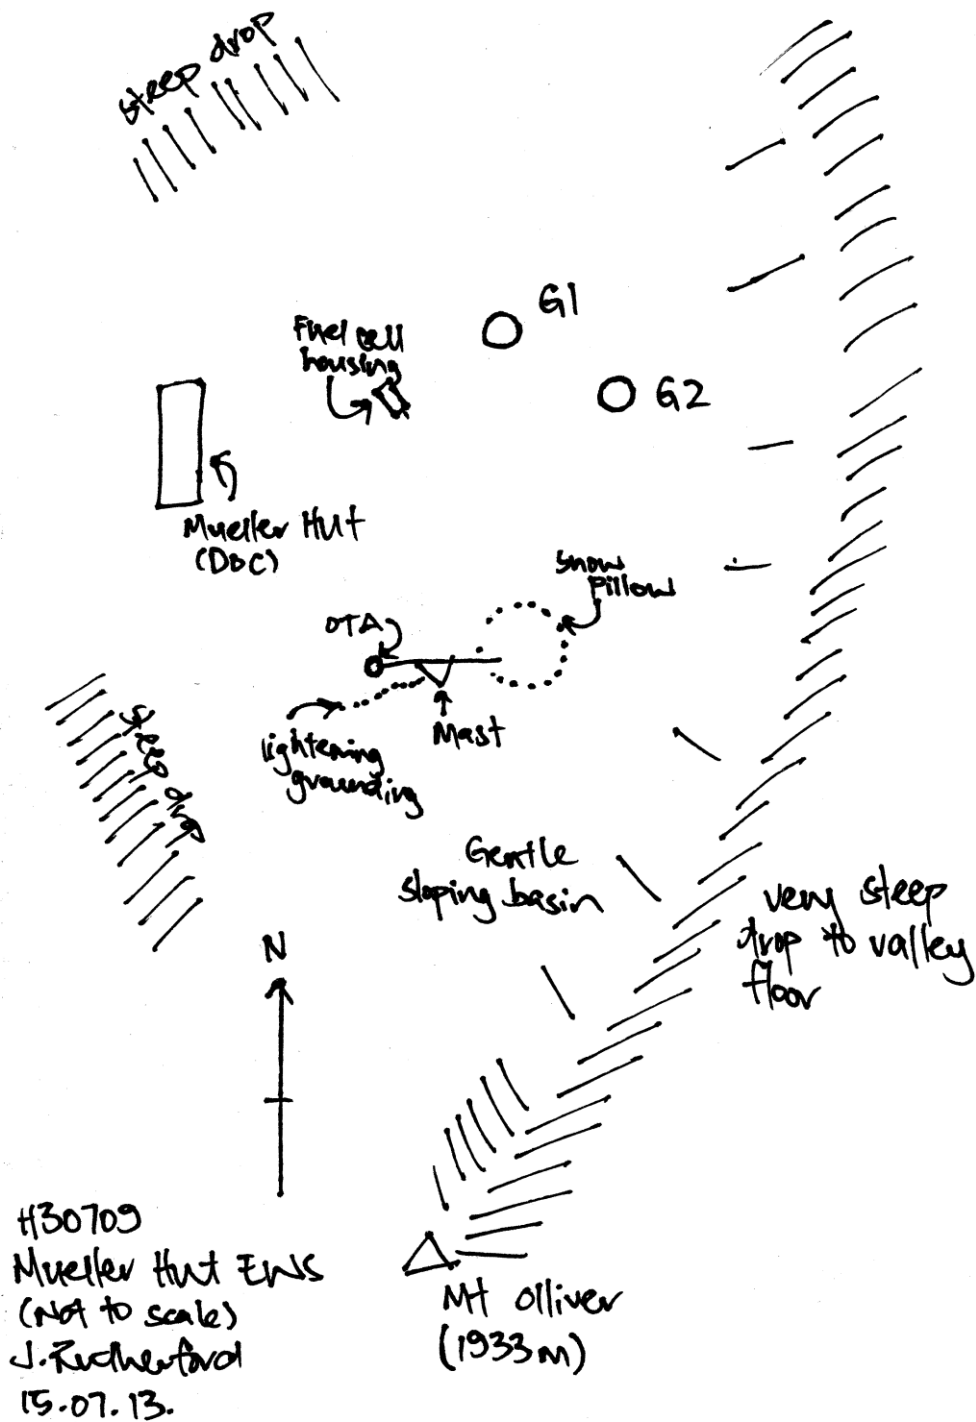 steep drop
G1
Fuel cell
housing
G2
Mueller Hut
(DOC)
Snow
Pillow
OTA
Mast
lightening
grounding
steep drop
Gentle
sloping basin
very steep
drop to valley
floor
N
H30709
Mueller Hut EWS
(Not to scale)
J. Rutherford
15.07.13.
Mt Olliver
(1933m)